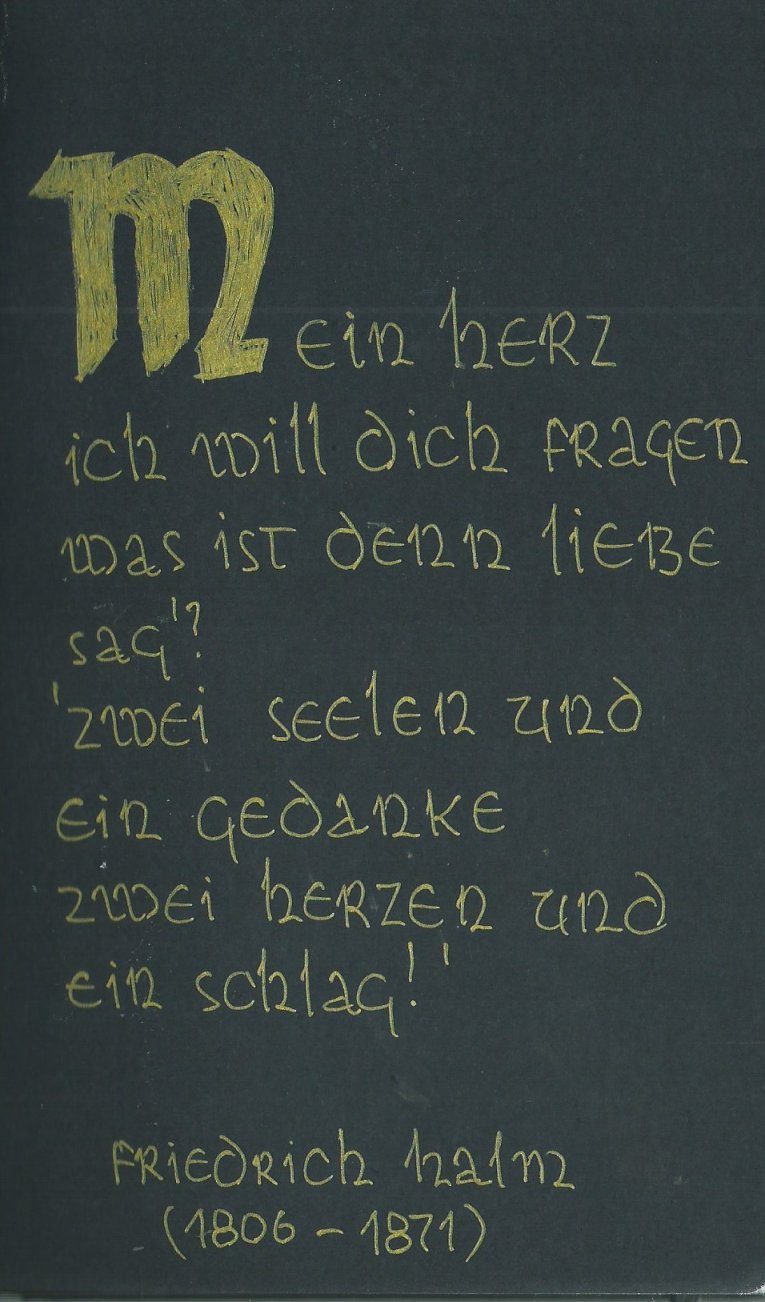 Mein Herz
ich will dich fragen
was ist denn Liebe
sag'?
'Zwei Seelen und
ein Gedanke
zwei Herzen und
ein Schlag!'
Friedrich Halm
(1806 - 1871)